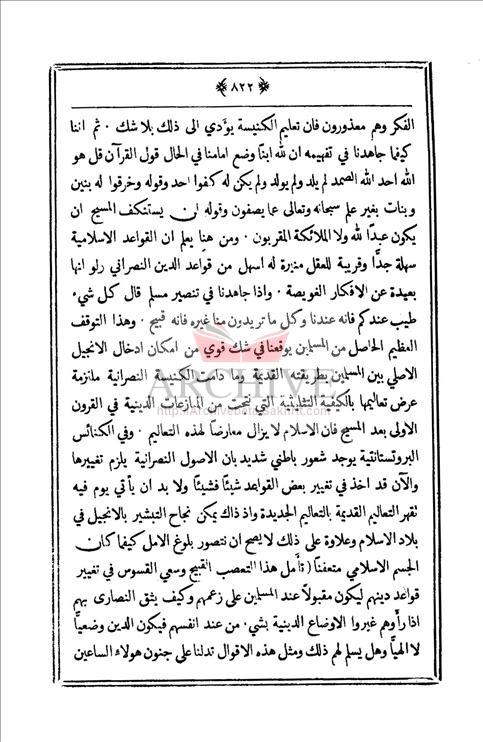 ﴿ ٨٢٢ ﴾
الفكر وهم معذورون فان تعليم الكنيسة يؤدي الى ذلك بلا شك ٠ ثم اننا
كيفما جاهدنا في تفهيمه ان لله ابناً وضع امامنا في الحال قول القرآن قل هو
الله احد الله الصمد لم يلد ولم يولد ولم يكن له كفوا احد وقوله وخرقوا له بنين
وبنات بغير علم سبحانه وتعالى عما يصفون وقوله لن يستنكف المسيح ان
يكون عبداً لله ولا الملائكة المقربون ٠ ومن هنا يعلم ان القواعد الاسلامية
سهلة جداً وقريبة للعقل منيرة له اسهل من قواعد الدين النصراني ولو انها
بعيدة عن الافكار الغويصة ٠ واذا جاهدنا في تنصير مسلم قال كل شيء
طيب عندكم فانه عندنا وكل ما تريدون منا غيره فانه قبيح ٠ وهذا التوقف
العظيم الحاصل من المسلمين يوقعنا في شك قوي من امكان ادخال الانجيل
الاصلي بين المسلمين بطريقته القديمة وما دامت الكنيسة النصرانية ملتزمة
ARCHIVE
عرض تعاليمها بالكيفية التثليثية التي نتجت من المنازعات الدينية في القرون
http://Archivebeta.Sakhrit.com
الاولى بعد المسيح فان الاسلام لا يزال معارضاً لهذه التعاليم ٠ وفي الكنائس
البروتستانتية يوجد شعور باطني شديد بان الاصول النصرانية يلزم تغييرها
والآن قد اخذ في تغيير بعض القواعد شيئاً فشيئاً ولا بد ان يأتي يوم فيه
تقهر التعاليم القديمة بالتعاليم الجديدة واذ ذاك يمكن نجاح التبشير بالانجيل في
بلاد الاسلام وعلاوة على ذلك لا يصح ان نتصور بلوغ الامل كيفما كان
الجسم الاسلامي متعفناً ( تأمل هذا التعصب القبيح وسعي القسوس في تغيير
قواعد دينهم ليكون مقبولاً عند المسلمين على زعمهم وكيف يثق النصارى بهم
اذا رأوهم غيروا الاوضاع الدينية بشيء من عند انفسهم فيكون الدين وضعياً
لا الهياً وهل يسلم لهم ذلك ومثل هذه الاقوال تدلنا على جنون هولاء الساعين